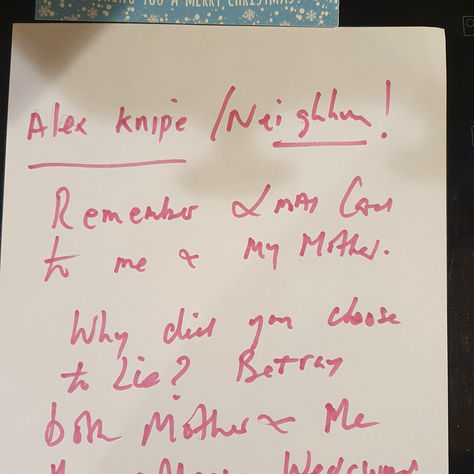 YOU A MERRY CHRISTMAS!
Alex Knipe / Neighbour!
Remember Xmas Card
to me & My Mother.
Why did you choose
to Lie? Betray
both Mother & Me